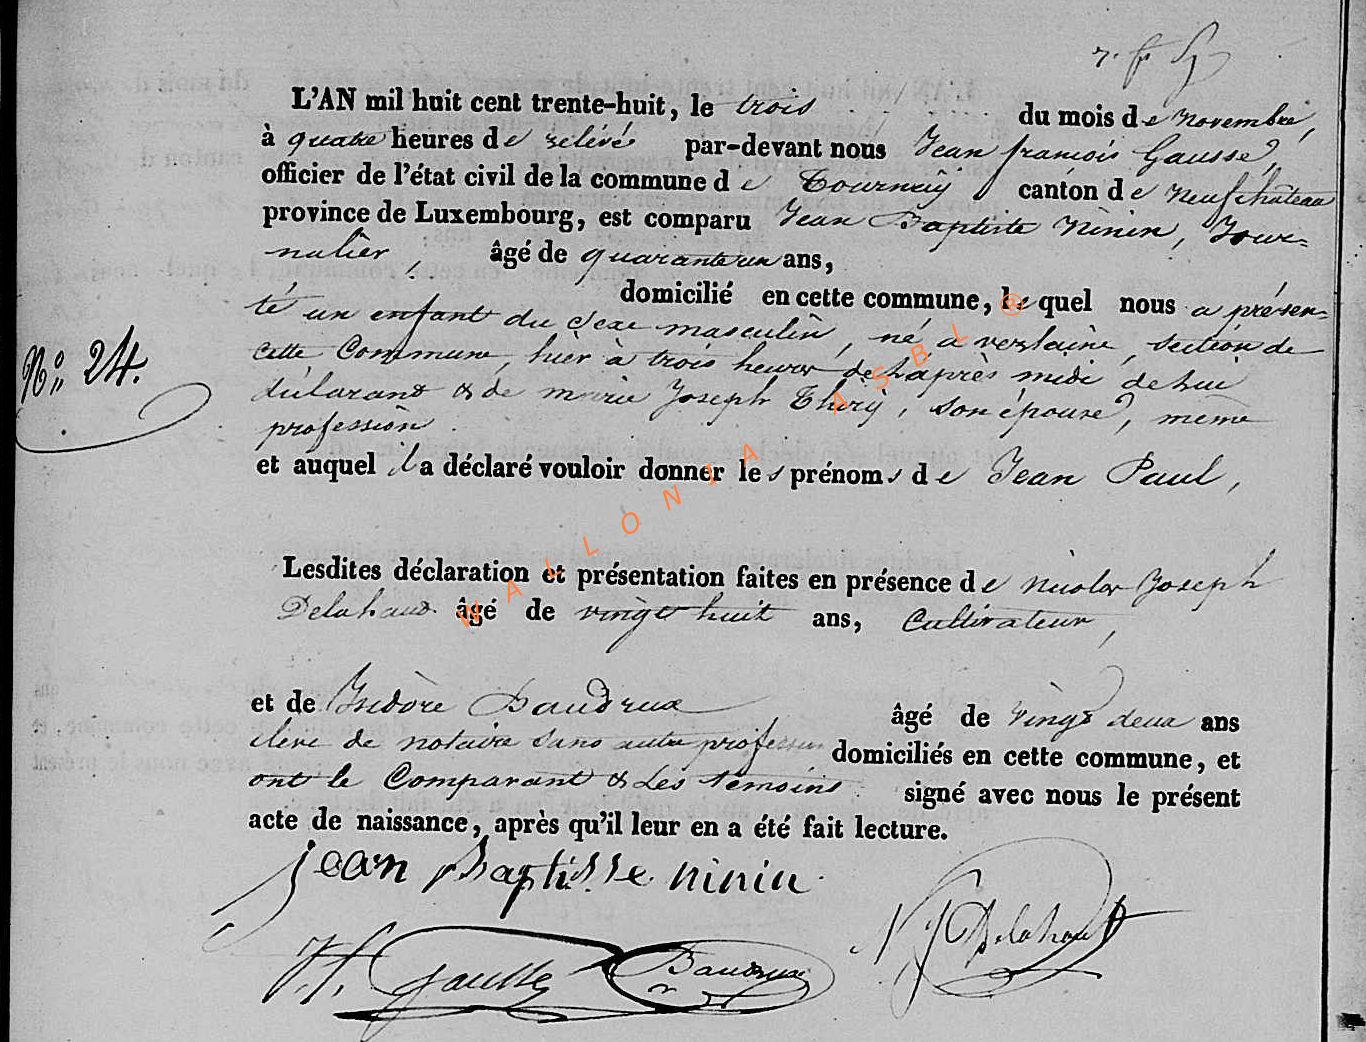 L'AN mil huit cent trente-huit, le trois du mois de novembre,
à quatre heures de relévé par-devant nous Jean françois Gausse,
officier de l'état civil de la commune de Tournaÿ canton de Neufchâteau
province de Luxembourg, est comparu Jean Baptiste Ninin, Jour=
nalier, âgé de quarante un ans,
domicilié en cette commune, le quel nous a présen=
té un enfant du sexe masculin, né à verlaine, section de
cette Commune, hier à trois heures de l'après midi de lui
déclarant & de marie Joseph Thiry, son épouse, même
profession.
N°. 24.
et auquel il a déclaré vouloir donner les prénoms de Jean Paul,
Lesdites déclaration et présentation faites en présence de nicolas Joseph
Delahaut âgé de vingt huit ans, Cultivateur,
et de Isidore Baudrux âgé de vingt deux ans
élève de notaire sans autre profession domiciliés en cette commune, et
ont le Comparant & les témoins signé avec nous le présent
acte de naissance, après qu'il leur en a été fait lecture.
Jean Baptisse ninin
N J Delahaut
J. f. Gausse Baudrux
WALLONIA ASBL ®